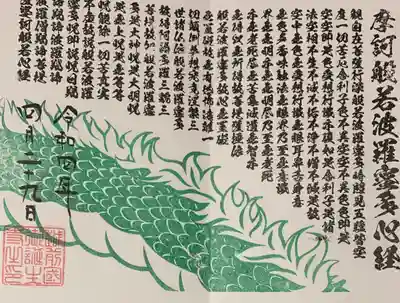 摩訶般若波羅蜜多心経
観自在菩薩行深般若波羅蜜多時照見五蘊皆空
度一切苦厄舎利子色不異空空不異色色即是
空空即是色受想行識亦復如是舎利子是諸
法空相不生不滅不垢不浄不増不減是故
空中無色無受想行識無眼耳鼻舌身意
無色声香味触法無眼界乃至無意識
界無無明亦無無明尽乃至無老死
亦無老死尽無苦集滅道無智亦
無得以無所得故菩提薩埵依
般若波羅蜜多故心無罣礙
無罣礙故無有恐怖遠離一
切顛倒夢想究竟涅槃三
世諸仏依般若波羅蜜多
故得阿耨多羅三藐三
菩提故知般若波羅蜜
多是大神呪是大明呪
是無上呪是無等等
呪能除一切苦真実
不虚故説般若波羅蜜
多呪即説呪曰羯諦
羯諦波羅羯諦波羅
僧羯諦菩提薩婆訶
般若心経
令和四年
四月二十九日